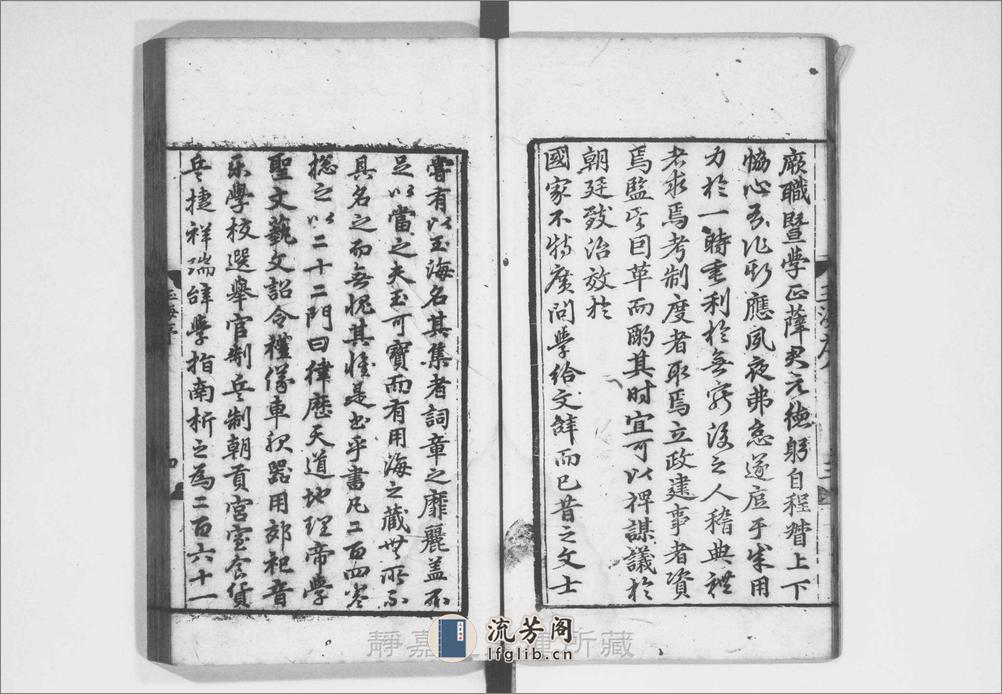 厥職暨學正薛君元德躬自程督上下
恊心吾作斯應夙夜弗怠遂底于成用
力於一時垂利於無窮後之人稽典禮
者求焉考制度者取焉立政建事者資
焉監其因革而酌其时宜可以裨謀議於
朝廷致治效於
國家不特廣问學給文辭而已昔之文士
嘗有以玉海名其集者詞章之靡麗盖不
足以當之夫玉可寶而有用海之藏無所不
具名之而無愧其惟是出乎書凡二百四卷
揔之以二十二門曰律歷天道地理帝學
聖文藝文詔令禮儀車服器用郊祀音
乐學校選舉官制兵制朝貢宮室食貨
兵捷祥瑞辭學指南析之為二百六十一
玉海序
靜嘉 所藏
流芳阁
lfglib.cn